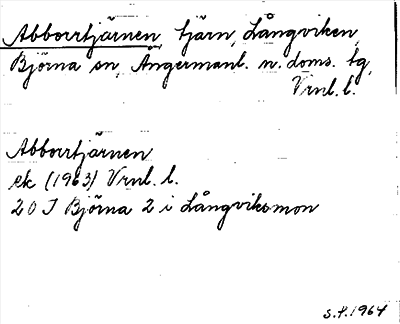 Abborrtjärnen, tjärn, Långviken,
Björna sn, Ångermanl. n. doms. tg,
Vrnl. l.
Abborrtjärnen
ek (1963) Vrnl. l.
20 J Björna 2 i Långviksmon
S.P. 1964